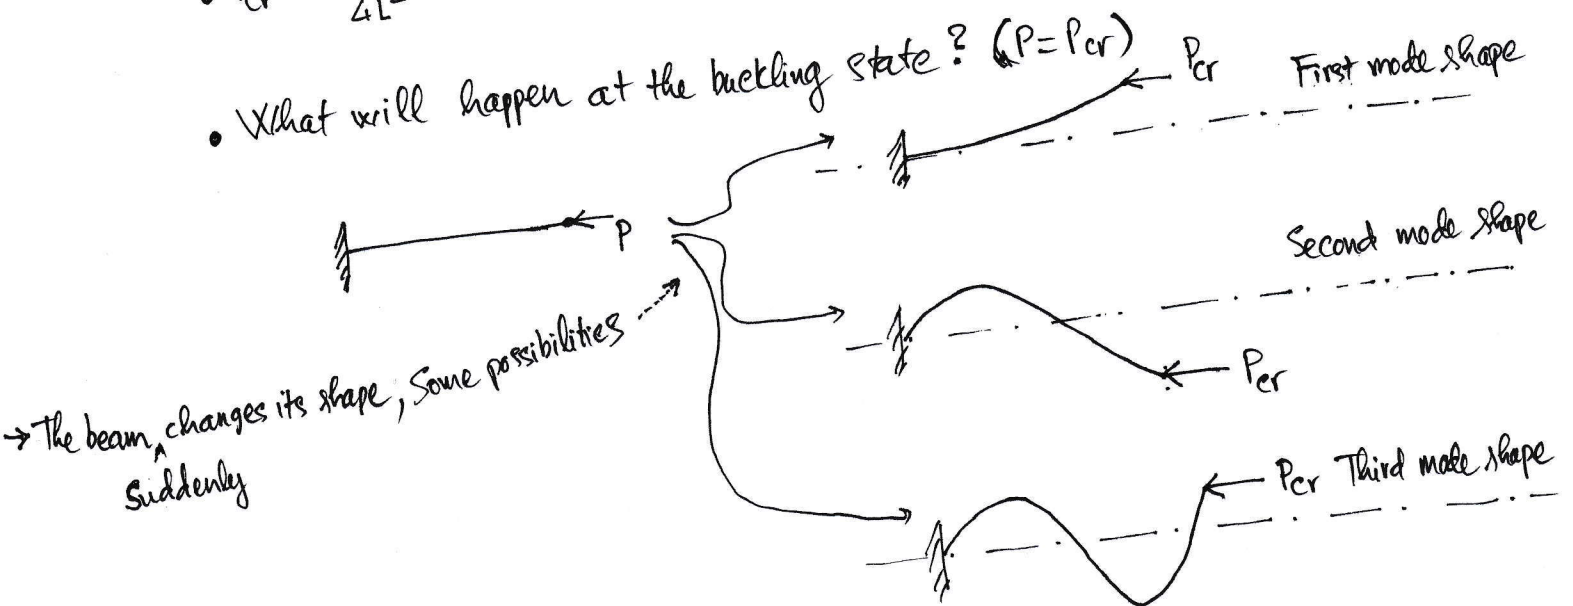 cr
4L²
• What will happen at the buckling state? (P=Pcr)
Pcr First mode shape
P
Second mode shape
Pcr
→ The beam suddenly changes its shape, Some possibilities
Pcr Third mode shape